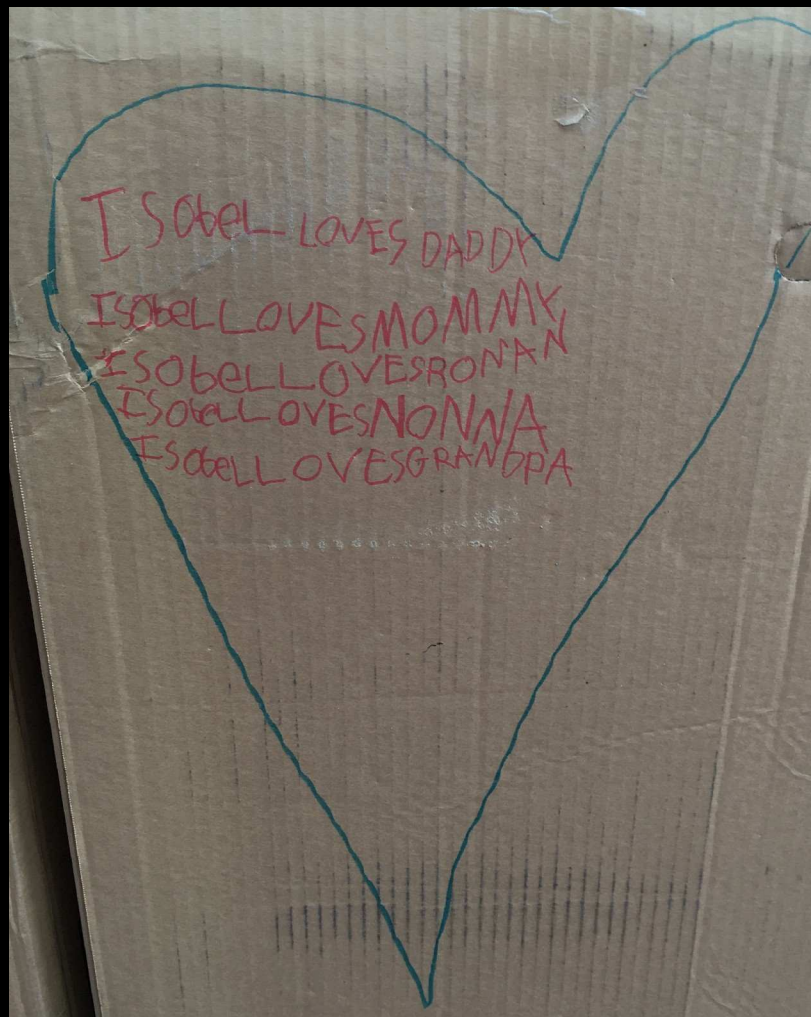 ISObeL LOVES DADDY
ISObeLLOVESMOMMY
ISObeLLOVESRONAN
ISObeLLOVESNONNA
ISObeLLOVESGRANDPA